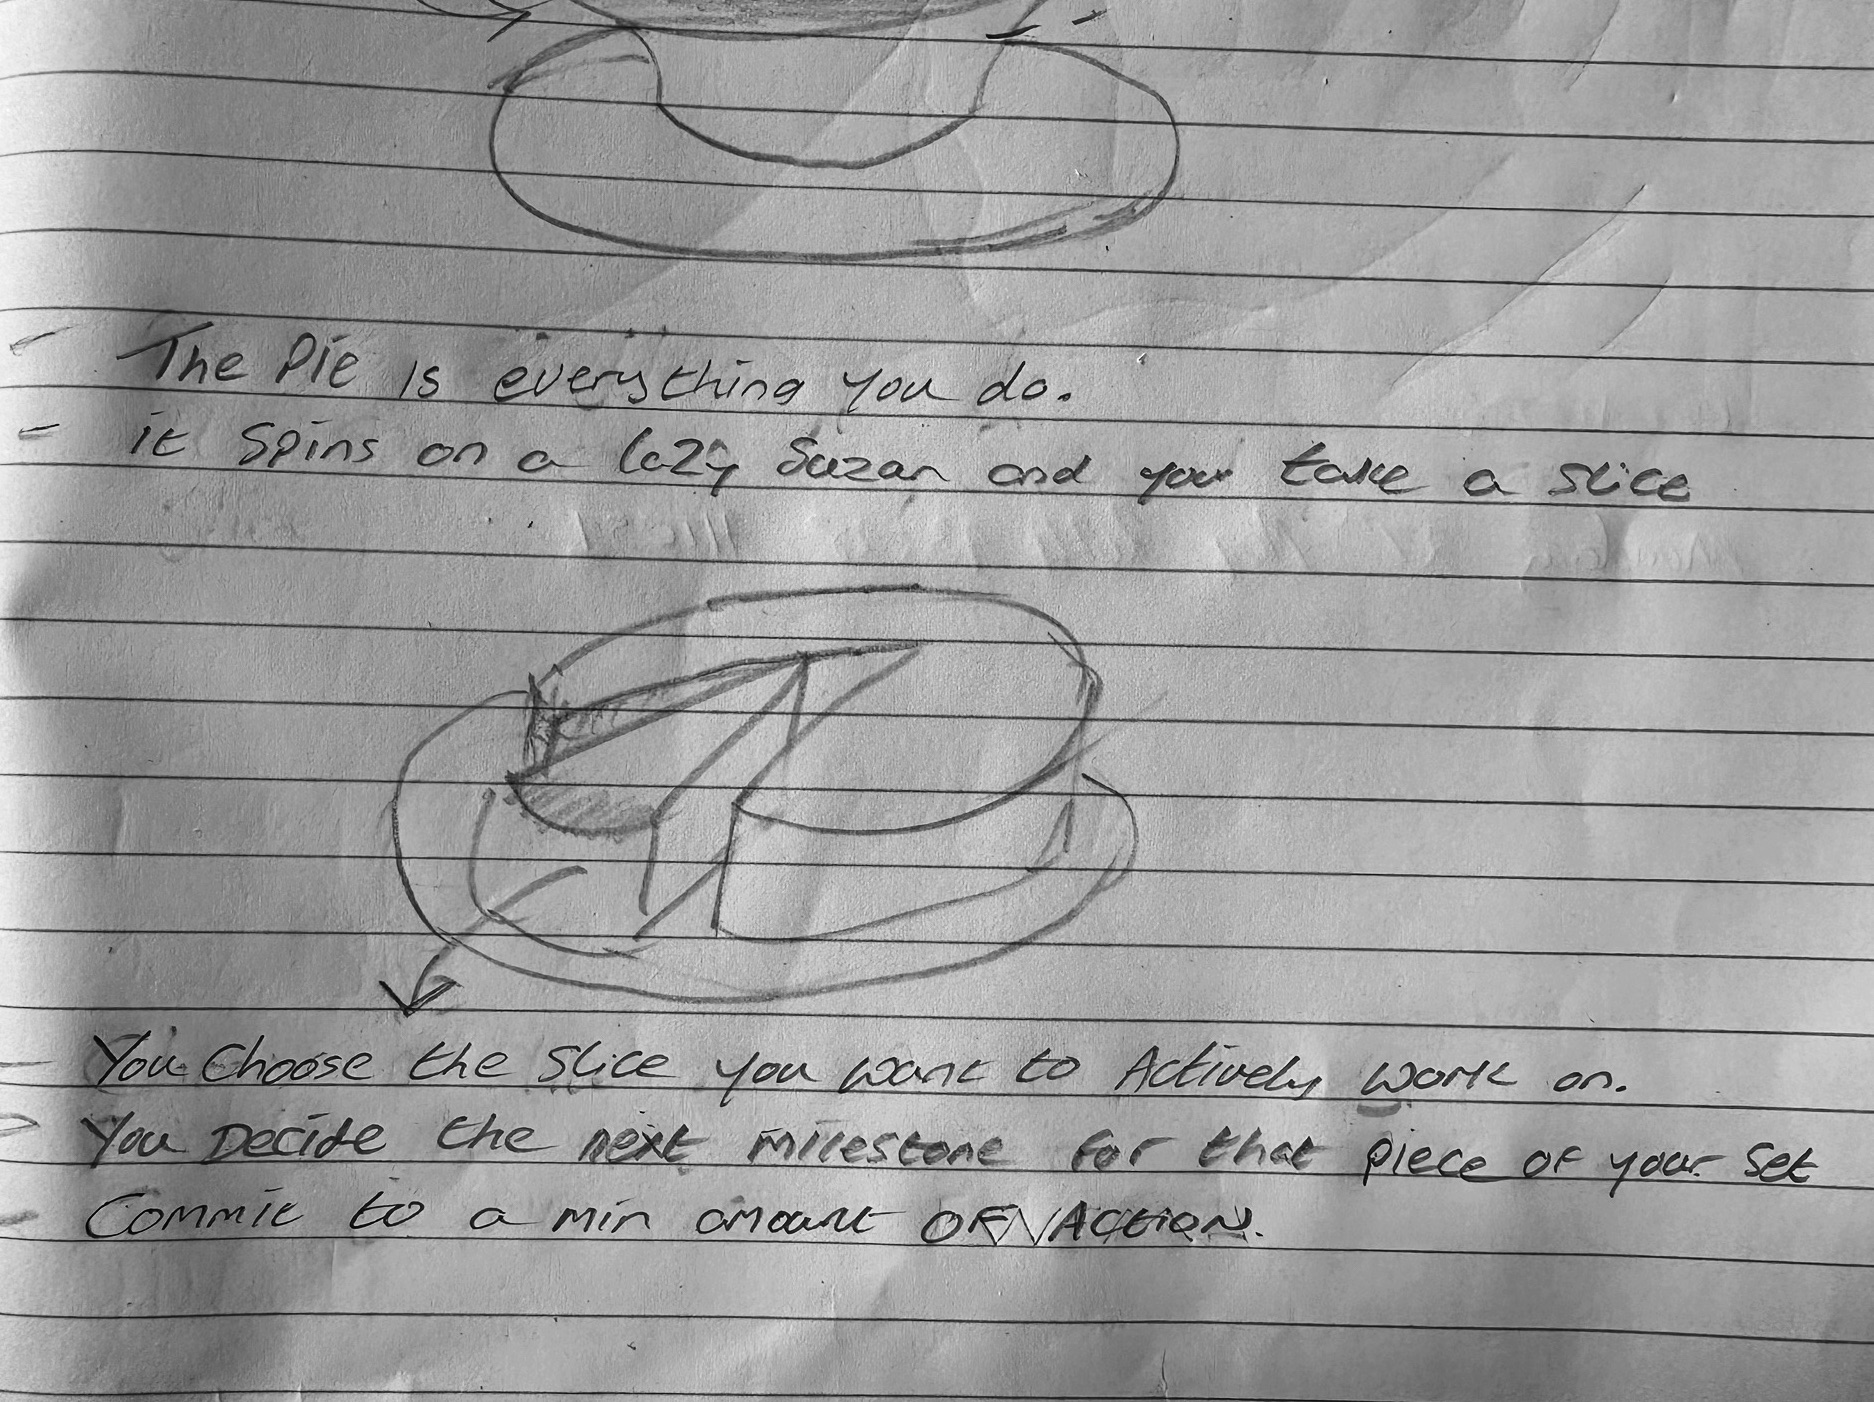 - The Pie is everything you do.
- it Spins on a lazy Suzan and you take a slice
You Choose the Slice you want to Actively work on.
You Decide the next milestone for that piece of your set
Commit to a min amount OF ACtioN.